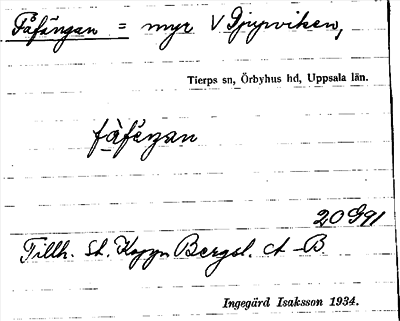 Fåfängan = myr V Djupviken,
Tierps sn, Örbyhus hd, Uppsala län.
fåfäŋan
20 G91
Tillh. St. Koppn Bergsl. A-B
Ingegärd Isaksson 1934.